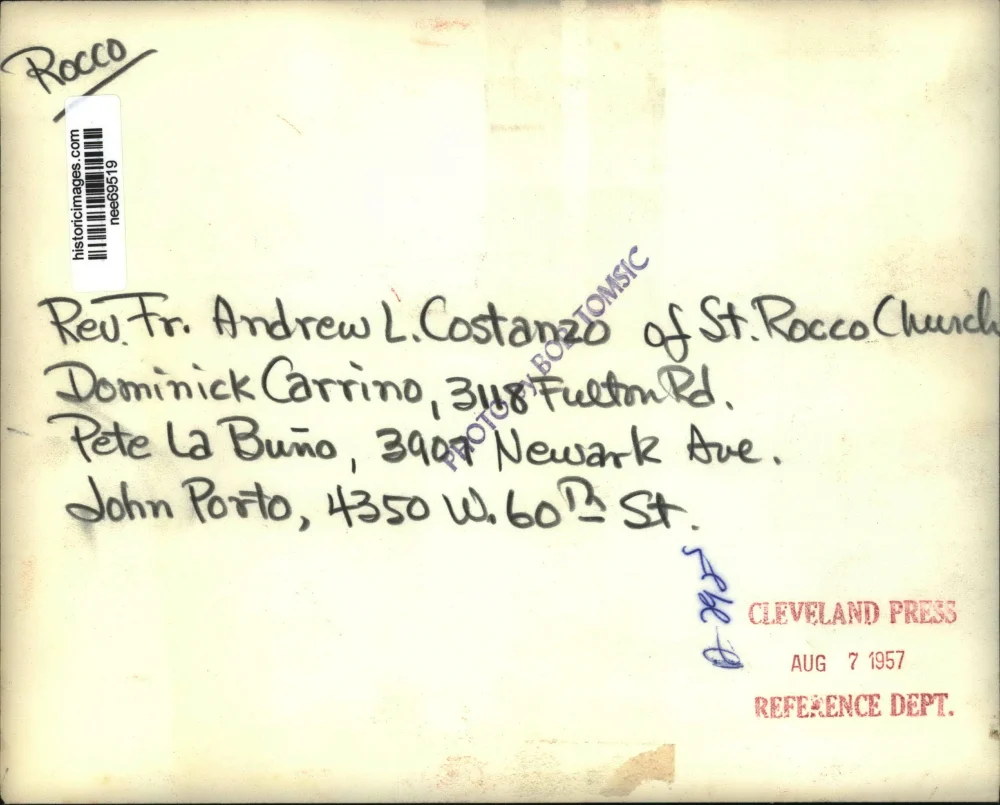 Rocco
historicimages.com
nee69519
Rev. Fr. Andrew L. Costanzo of St. Rocco Church
Dominick Carrino, 3118 Fulton Rd.
Pete La Buño, 3907 Newark Ave.
John Porto, 4350 W. 60th St.
PHOTO BY BOB TOMSIC
CLEVELAND PRESS
AUG 7 1957
REFERENCE DEPT.